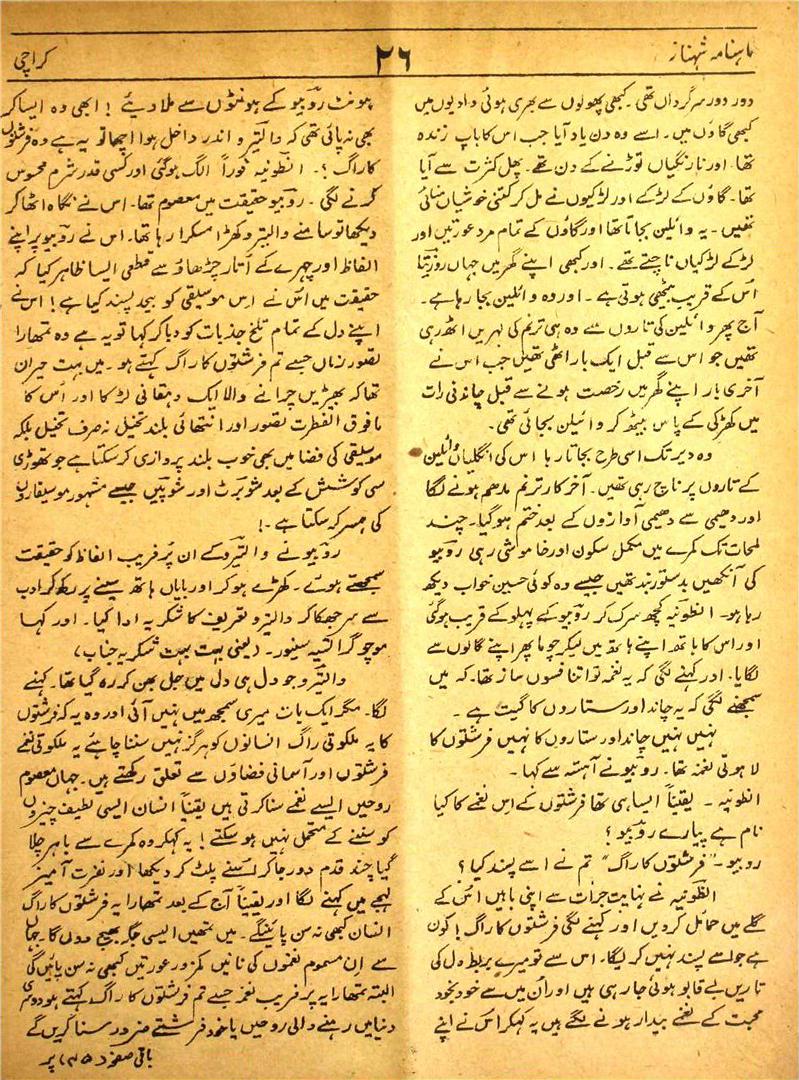 ماہنامہ شہناز
۲۶
کراچی
دور دور سرگرداں تھی۔ کبھی پھولوں سے بھری ہوئی وادیوں میں
کبھی گاؤں میں۔ اسے وہ دن یاد آیا جب اس کا باپ زندہ
تھا۔ اور نارنگیاں توڑنے کے دن تھے۔ پھل کثرت سے آیا
تھا۔ گاؤں کے لڑکے اور لڑکیوں نے مل کر کتنی خوشیاں منائی
تھیں۔ یہ وائلین بجاتا تھا اور گاؤں کے تمام مرد عورتیں اور
لڑکے لڑکیاں ناچتے تھے۔ اور کبھی اپنے گھر میں جہاں روزیتا
اس کے قریب بیٹھی ہوتی ہے۔ اور وہ وائلین بجا رہا ہے۔
آج پھر وائلین کی تاروں سے وہ ہی ترنم کی لہریں اٹھ رہی
تھیں جو اس سے قبل ایک بار اٹھی تھیں جب اس نے
آخری بار اپنے گھر میں رخصت ہونے سے قبل چاندنی رات
میں کھڑکی کے پاس بیٹھ کر وائیلن بجائی تھی۔
وہ دیر تک اسی طرح بجاتا رہا اس کی انگلیاں وائلین
کے تاروں پر ناچ رہی تھیں۔ آخر کار ترنم مدھم ہونے لگا
اور دھیمی سے دھیمی آوازوں کے بعد ختم ہوگیا۔ چند
لمحات تک کمرے میں مکمل سکون اور خاموشی رہی روبیو
کی آنکھیں بدستور بند تھیں جیسے وہ کوئی حسین خواب دیکھ
رہا ہو۔ انطونیہ کچھ سرک کر روبیو کے پہلو کے قریب ہوگئی
اور اس کا ہاتھ اپنے ہاتھ میں لیکر چوما پھر اپنے گالوں سے
لگایا۔ اور کہنے لگی کہ یہ نغمہ تو اتنا فسوں ساز تھا۔ کہ میں
سمجھنے لگی کہ یہ چاند اور ستاروں کا گیت ہے۔
نہیں نہیں چاند اور ستاروں کا نہیں فرشتوں کا
لاہوتی نغمہ تھا۔ روبیو نے آہستہ سے کہا۔
انطونیہ۔ یقیناً ایسا ہی تھا فرشتوں کے اس نغمے کا کیا
نام ہے پیارے روبیو؟
روبیو۔ "فرشتوں کا راگ" تم نے اسے پسند کیا؟
انطونیہ نے نہایت جرأت سے اپنی باہیں اس کے
گلے میں حمائل کردیں اور کہنے لگی فرشتوں کا راگ! کون
ہے جو اسے پسند نہیں کریگا۔ اس سے تو میرے بربط دل کی
تاریں بے قابو ہوئی جا رہی ہیں اور ان میں سے خود بخود
محبت کے نغمے بیدار ہونے لگے ہیں یہ کہکر اس نے اپنے
ہونٹ روبیو کے ہونٹوں سے ملا دیئے! ابھی وہ ایسا کر
بھی نہ پائی تھی کہ والتیرو اندر داخل ہوا اچھا تو یہ ہے وہ فرشتوں
کا راگ؟۔ انطونیہ فوراً الگ ہوگئی اور کسی قدر شرم محسوس
کرنے لگی۔ روبیو حقیقت میں معصوم تھا۔ اس نے نگاہ اٹھا کر
دیکھا تو سامنے والتیرو کھڑا مسکرا رہا تھا۔ اس نے روبیو پر اپنے
الفاظ اور چہرے کے اتار چڑھاؤ سے قطعی ایسا ظاہر کیا کہ
حقیقت میں اس نے اس موسیقی کو بیحد پسند کیا ہے! اس نے
اپنے دل کے تمام تلخ جذبات کو دبا کر کہا تو یہ ہے وہ تمہارا
تصور زماں جسے تم فرشتوں کا راگ کہتے ہو۔ میں بہت حیران
تھا کہ بھیڑیں چرانے والا ایک دہقانی لڑکا اور اس کا
مافوق الفطرت تصور اور انتہائی بلند تخیل نہ صرف تخیل بلکہ
موسیقی کی فضا میں بھی خوب بلند پروازی کرسکتا ہے جو تھوڑی
سی کوشش کے بعد شوبرٹ اور شوپیں جیسے مشہور موسیقاروں
کی ہمسر کہ سکتا ہے۔!
روبیو نے والتیرو کے ان پُر فریب الفاظ کو حقیقت
سمجھتے ہوئے۔ کھڑے ہو کر اور بایاں ہاتھ سینے پر رکھ کر ادب
سے سر جھکا کر والتیرو تعریف کا شکریہ ادا کیا۔ اور کہا
موچو گراتسیہ سنیور۔ (یعنی بہت بہت شکریہ جناب)
والتیرو جو دل ہی دل میں جل بھن کر رہ گیا تھا۔ کہنے
لگا۔ مگر ایک بات میری سمجھ میں نہیں آئی اور وہ یہ کہ فرشتوں
کا یہ ملکوتی راگ انسانوں کو ہرگز نہیں سننا چاہئے یہ ملکوتی نغمے
فرشتوں اور آسمانی فضاؤں سے تعلق رکھتے ہیں۔ جہاں معصوم
روحیں ایسے نغمے سنا کرتی ہیں یقیناً انسان ایسی لطیف چیزوں
کو سننے کے متحمل نہیں ہو سکتے! یہ کہکر وہ کمرے سے باہر چلا
گیا چند قدم دور جا کر اسنے پلٹ کر دیکھا اور نفرت آمیز
لہجے میں کہنے لگا اور یقیناً آج کے بعد تمہارا یہ فرشتوں کا راگ
انسان کبھی نہ سن پائینگے۔ میں تمہیں ایسی جگہ بھیج دوں گا۔ جہاں
سے ان مسموم نغموں کی تانیں کمزور عورتیں کبھی نہ سن پائیں گی
البتہ تمہارا یہ پر فریب نغمہ جسے تم فرشتوں کا راگ کہتے ہو دوسری
دنیا میں رہنے والی روحیں یا خود فرشتے ضرور سنا کریں گے
باقی صفحہ (۴۵) پر